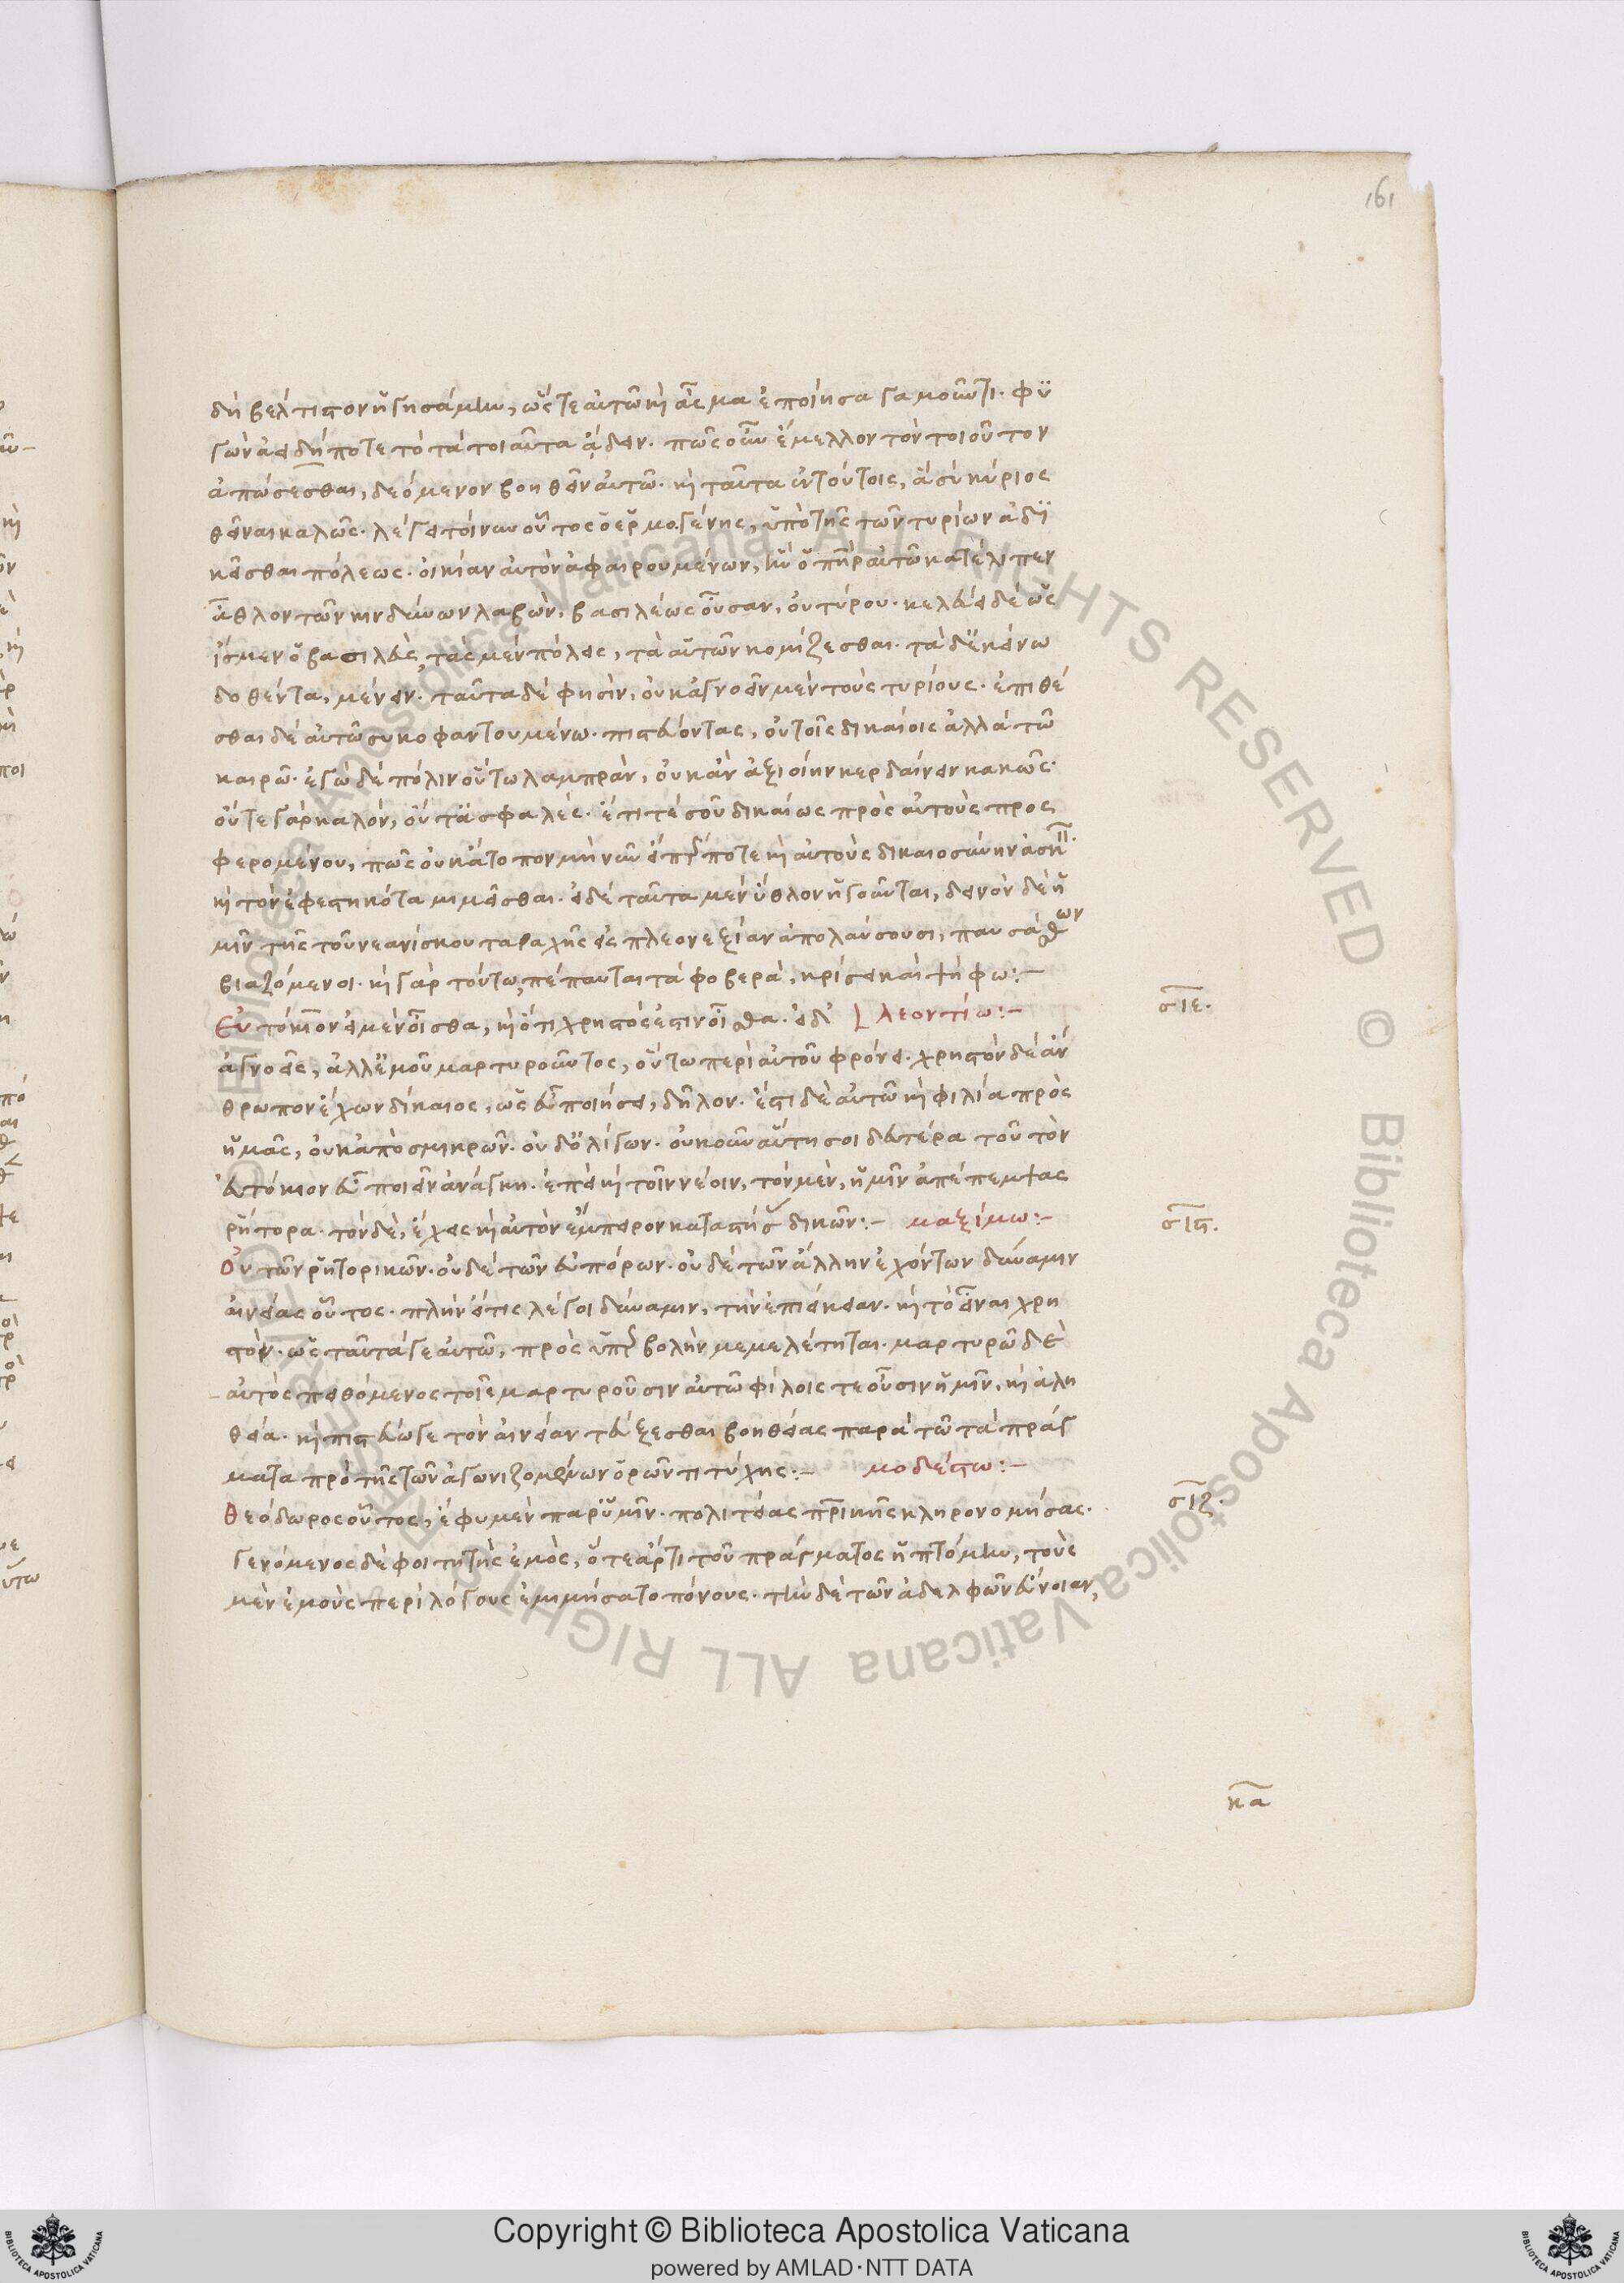 161
δὴ βέλτιστον ἡγησάμην, ὥστε αὐτῶ καὶ ἆσμα ἐποίησα γαμοῦντι. φύ
γων ἀεὶ δήποτε τὸ τὰ τοιαῦτα ἄδειν. πῶς οὖν ἔμελλον τὸν τοιοῦτον
ἀπώσεσθαι, δεόμενον βοηθεῖν αὐτῶ. καὶ ταῦτα ἐν τούτοις, ἃ σὺ κύριος
θεῖναι καλῶς. λέγει τοίνυν οὗτος ὁ ἑρμογένης, ὑπὸ τῆς τῶν τυρίων ἀδι
κεῖσθαι πόλεως. οἰκίαν αὐτὸν ἀφαιρουμένων, ἣν ὁ πατὴρ αὐτῶ κατέλιπεν
ἆθλον τῶν κινδύνων λαβὼν, βασιλέως οὖσαν, οὐ τύρου. κελεύει δὲ ὡς
ἴσμεν ὁ βασιλεὺς, τὰς μὲν πόλεις, τὰ αὐτῶν κομίζεσθαι. τὰ δ' ἐκείνω
δοθέντα, μένειν. ταῦτα δέ φησιν, οὐκ ἀγνοεῖν μὲν τοὺς τυρίους. ἐπιθέ
σθαι δὲ αὐτῶ συκοφαντουμένω. πιστεύοντας, οὐ τοῖς δικαίοις ἀλλὰ τῶ
καιρῶ. ἐγὼ δὲ πόλιν οὕτω λαμπρὰν, οὐκ ἂν ἀξιοίην κερδαίνειν κακῶς.
οὔτε γὰρ καλὸν, οὔτ' ἀσφαλές. ἔτι τέ σου δικαίως πρὸς αὐτοὺς προσ
φερομένου, πῶς οὐκ ἄτοπον μὴ νῦν εἴπερ ποτε καὶ αὐτοὺς δικαιοσύνην ἀσκεῖν.
καὶ τὸν ἐφεστηκότα μιμεῖσθαι. εἰ δὲ ταῦτα μὲν ὕθλον ἡγοῦνται, δεινὸν δὲ ἡ
μῖν τῆς τοῦ νεανίσκου ταραχῆς εἰς πλεονεξίαν ἀπολαύσουσι, παυσάσθων
βιαζόμενοι. καὶ γὰρ τούτω, πέπαυται τὰ φοβερὰ, κρίσει καὶ ψήφω:-
Εὐτόκιον εἰ μὲν οἶσθα, καὶ ὅτι χρηστός ἐστιν οἶσθα. εἰ δ' λεοντίω:- σιε.
ἀγνοεῖς, ἀλλ' ἐμοῦ μαρτυροῦντος, οὕτω περὶ αὐτοῦ φρόνει. χρηστὸν δὲ ἄν
θρωπον ἔχων δίκαιος, ὡς εὖ ποιήσει, δῆλον. ἔστι δὲ αὐτῶ καὶ φιλία πρὸς
ἡμᾶς, οὐκ ἀπὸ σμικρῶν. οὐδ' ὀλίγων. οὐκοῦν αὕτη σοι δευτέρα τοῦ τὸν
εὐτόκιον εὖ ποιεῖν ἀνάγκη. ἐπεὶ καὶ τοῖν νέοιν, τὸν μὲν, ἡμῖν ἀπέπεμψας
ῥήτορα. τὸν δὲ, ἔχεις καὶ αὐτὸν ἔμπειρον καταστῆσαι δικῶν:- μαξίμω:- σιϛ.
Οὐ τῶν ῥητορικῶν. οὐδὲ τῶν εὐπόρων. οὐδὲ τῶν ἄλλην ἐχόντων δύναμιν
αἰνείας οὗτος. πλὴν εἴ τις λέγοι δύναμιν, τὴν ἐπιείκειαν. καὶ τὸ εἶναι χρη
στόν. ὡς ταῦτά γε αὐτῶ, πρὸς ὑπερβολὴν μεμελέτηται. μαρτυρῶ δὲ
αὐτὸς πειθόμενος τοῖς μαρτυροῦσιν αὐτῶ φίλοις τε οὖσιν ἡμῖν, καὶ ἀλη
θεία. καὶ πιστεύω γε τὸν αἰνείαν τεύξεσθαι βοηθείας παρὰ τῶ τὰ πράγ
ματα πρὸ τῆς τῶν ἀγωνιζομένων ὁρῶντι τύχης:- μοδέστω:-
Θεόδωρος οὗτος, ἔφυ μὲν παρ' ὑμῖν. πολιτείας πατρικῆς κληρονομήσας. σιζ.
γενόμενος δὲ φοιτητὴς ἐμὸς, ὅτε ἄρτι τοῦ πράγματος ἡπτόμην, τοὺς
μὲν ἐμοὺς περὶ λόγους ἐμιμήσατο πόνους. τὴν δὲ τῶν ἀδελφῶν εὔνοιαν,
κα
Copyright © Biblioteca Apostolica Vaticana
powered by AMLAD · NTT DATA